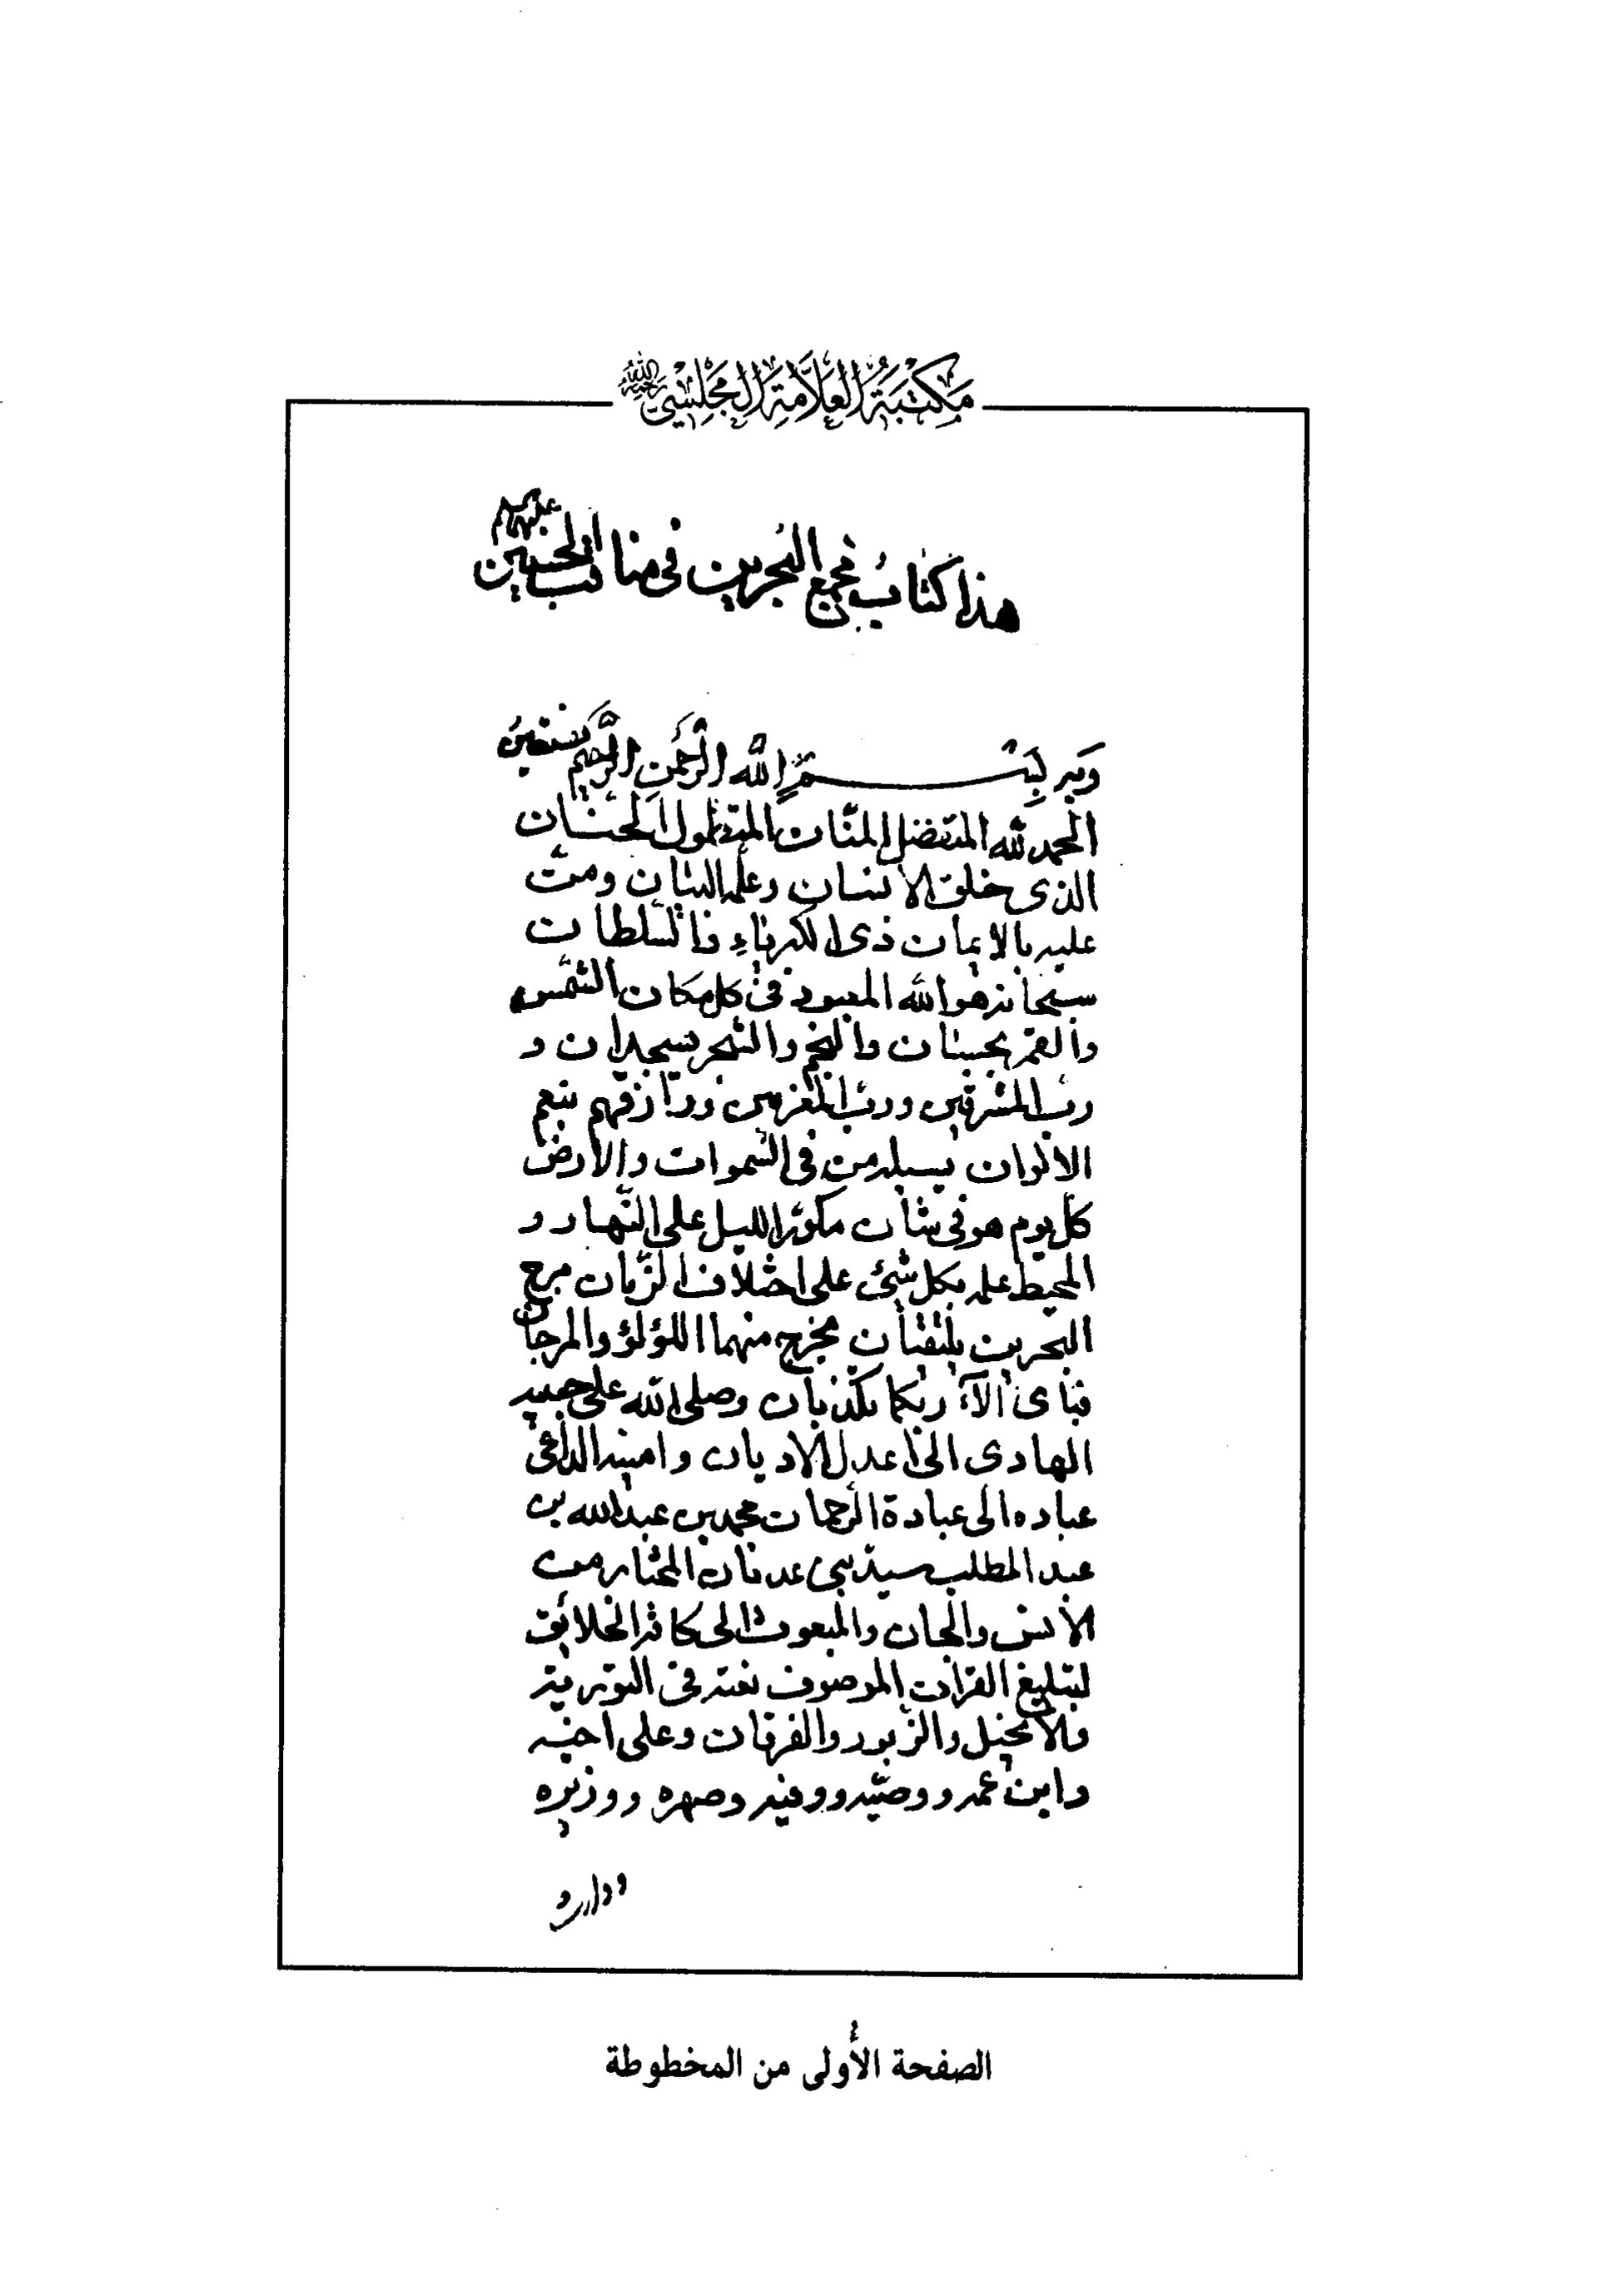 مكتبة العلامة المجلسي رحمه الله
هذا كتاب مجمع البحرين فى مناقب الحسنين عليهما
وبه بسم الله الرحمن الرحيم نستعين
الحمد لله المتفضل المنان المتطول الحنان
الذى خلق الانسان وعلمه البيان ومن
عليه بالايمان ذى الكبرياء والسلطان
سبحانه هو الله المعبود فى كل مكان الشمس
والقمر بحسبان والنجم والشجر يسجدان و
رب المشرقين ورب المغربين ورازقهم بنعم
الالوان يسئله من فى السموات والارض
كل يوم هو فى شأن مكور الليل على النهار و
المحيط علمه بكل شئ على اختلاف الزمان مرج
البحرين يلتقيان مخرج منهما اللؤلؤ والمرجان
فباى الآء ربكما تكذبان وصلى الله على حبيبه
الهادى الى اعدل الاديان وامينه الداعى
عباده الى عبادة الرحمان محمد بن عبد الله بن
عبد المطلب سيد بنى عدنان المختار من
الانس والجان والمبعوث الى كافة الخلائق
لتبليغ القرآن الموصوف نعته فى التورية
والانجيل والزبور والفرقان وعلى اخيه
وابن عمه ووصيه ووفيه وصهره ووزيره
الصفحة الأولى من المخطوطة